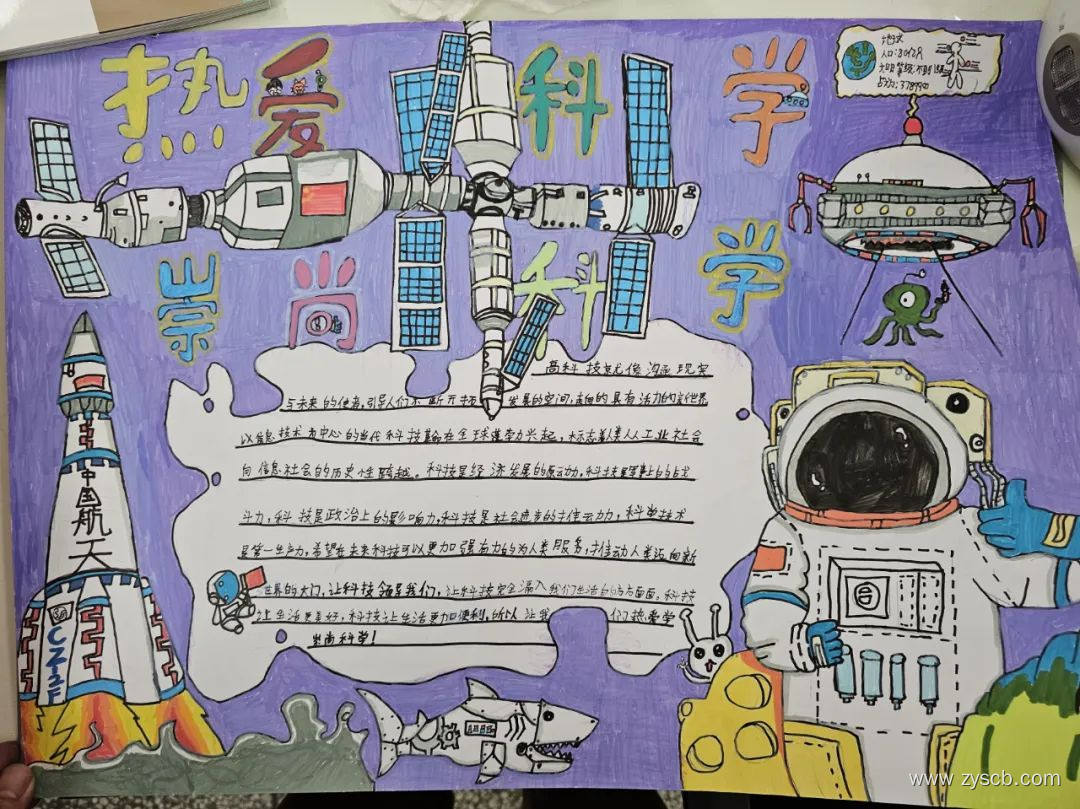 热爱科学
崇尚科学
地球
人口:80亿人
中国航天
CZ-2F
高科技就像沟通现实
与未来的使者,引导人们不断开拓发展的空间,走向的具有活力的文化世界
以信息技术为中心的当代科技革命在全球蓬勃兴起,标志着人类从工业社会
向信息社会的历史性跨越。科技是经济发展的原动力,科技是军事上的战
斗力,科技是政治上的影响力,科技是社会进步的推动力,科学技术
是第一生产力,希望在未来科技可以更加强有力的为人类服务,推动人类迈向新
世界的大门,让科技领导我们,让科技完全融入我们生活的方方面面,科技
让生活更美好,科技让生活更加便利,所以让我们热爱学
崇尚科学!
www.zyscb.com